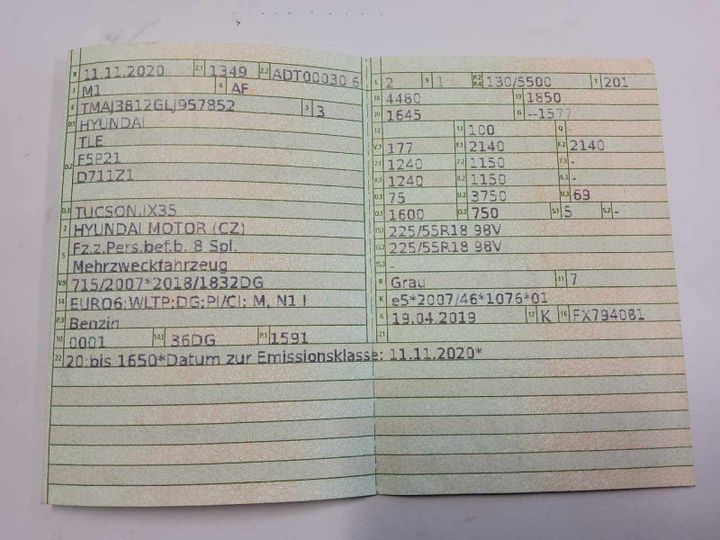 B 11.11.2020 2.1 1349 2.2 ADT00030 6
J M1 4 AF
E TMAJ3812GLJ957852 3 3
D.1 HYUNDAI
TLE
D.2 F5P21
D711Z1
D.3 TUCSON,IX35
2 HYUNDAI MOTOR (CZ)
5 Fz.z.Pers.bef.b. 8 Spl.
Mehrzweckfahrzeug
V.9 715/2007*2018/1832DG
14 EURO6;WLTP;DG;PI/CI; M, N1 I
P.3 Benzin
10 0001 14.1 36DG P.1 1591
22 20:bis 1650*Datum zur Emissionsklasse: 11.11.2020*
L 2 9 1 P.2 P.4 130/5500 T 201
18 4480 19 1850
20 1645 G --1577
12 13 100 Q
V.7 177 F.1 2140 F.2 2140
7.1 1240 7.2 1150 7.3 -
8.1 1240 8.2 1150 8.3 -
U.1 75 U.2 3750 U.3 69
O.1 1600 O.2 750 S.1 5 S.2 -
15.1 225/55R18 98V
15.2 225/55R18 98V
15.3 -
R Grau 11 7
K e5*2007/46*1076*01
6 19.04.2019 17 K 16 FX794081
21